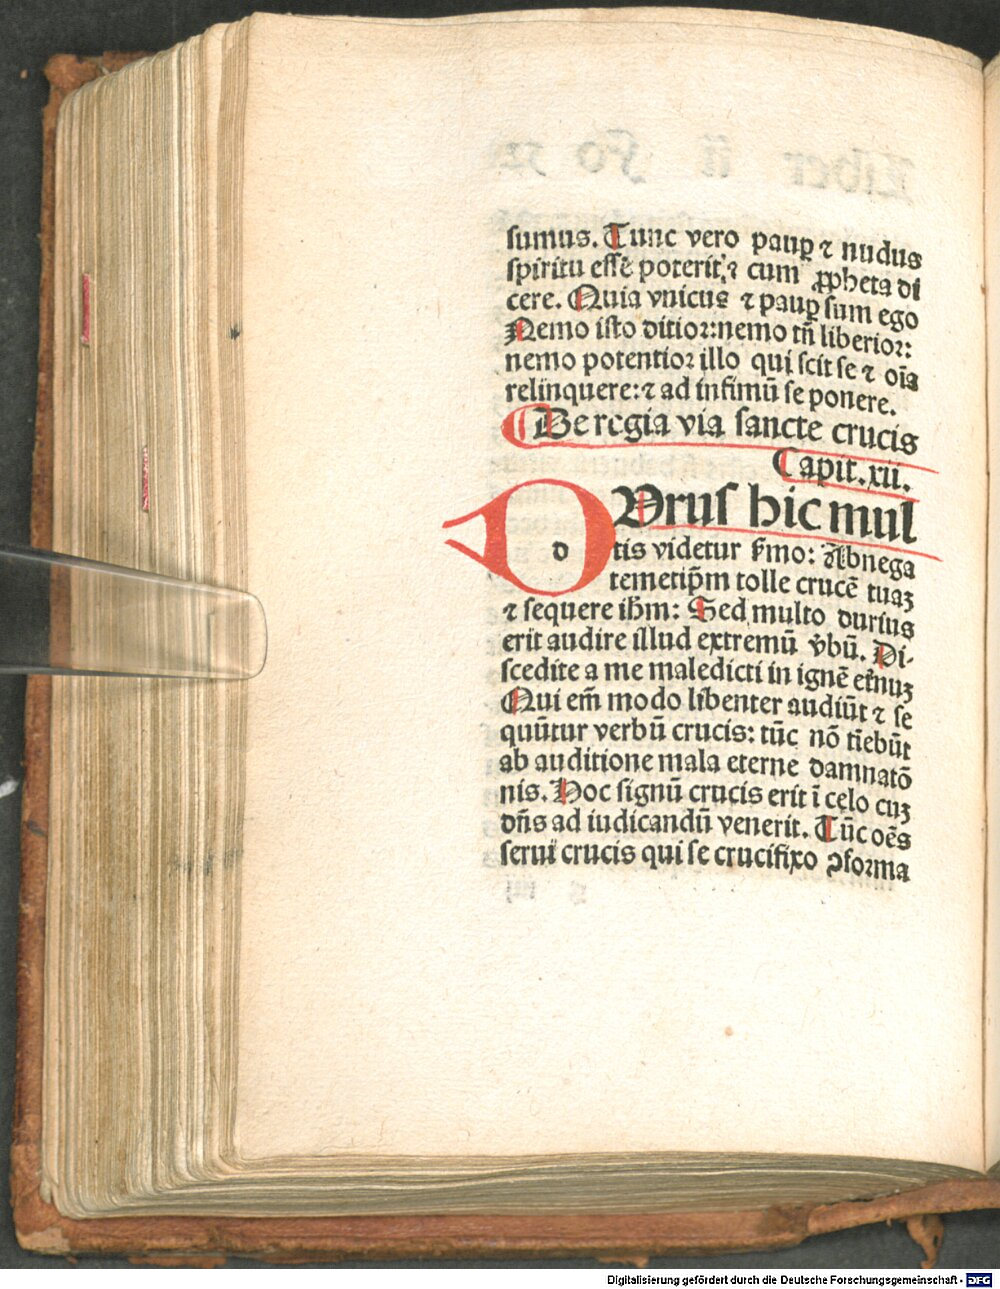 sumus. Tunc vero paup ⁊ nudus
spiritu esse poterit: ⁊ cum ꝓpheta di
cere. Quia vnicus ⁊ paup sum ego
Nemo isto ditior: nemo tn̄ liberior:
nemo potentior illo qui scit se ⁊ oīa
relinquere: ⁊ ad infimū se ponere.
De regia via sancte crucis
Capit. xii.
DVrus hic mul
d
tis videtur ẜmo: Abnega
temetip̄m tolle crucē tuaꝫ
⁊ sequere ihm̄: Sed multo durius
erit audire illud extremū v̓bū. Di-
scedite a me maledicti in ignē et̓nuꝫ
Qui em̄ modo libenter audiūt ⁊ se
quūtur verbū crucis: tūc nō tīebūt
ab auditione mala eterne damnatō
nis. Hoc signū crucis erit ī celo cuꝫ
dn̄s ad iudicandū venerit. Tūc oēs
serui crucis qui se crucifixo ꝯforma
Digitalisierung gefördert durch die Deutsche Forschungsgemeinschaft - DFG